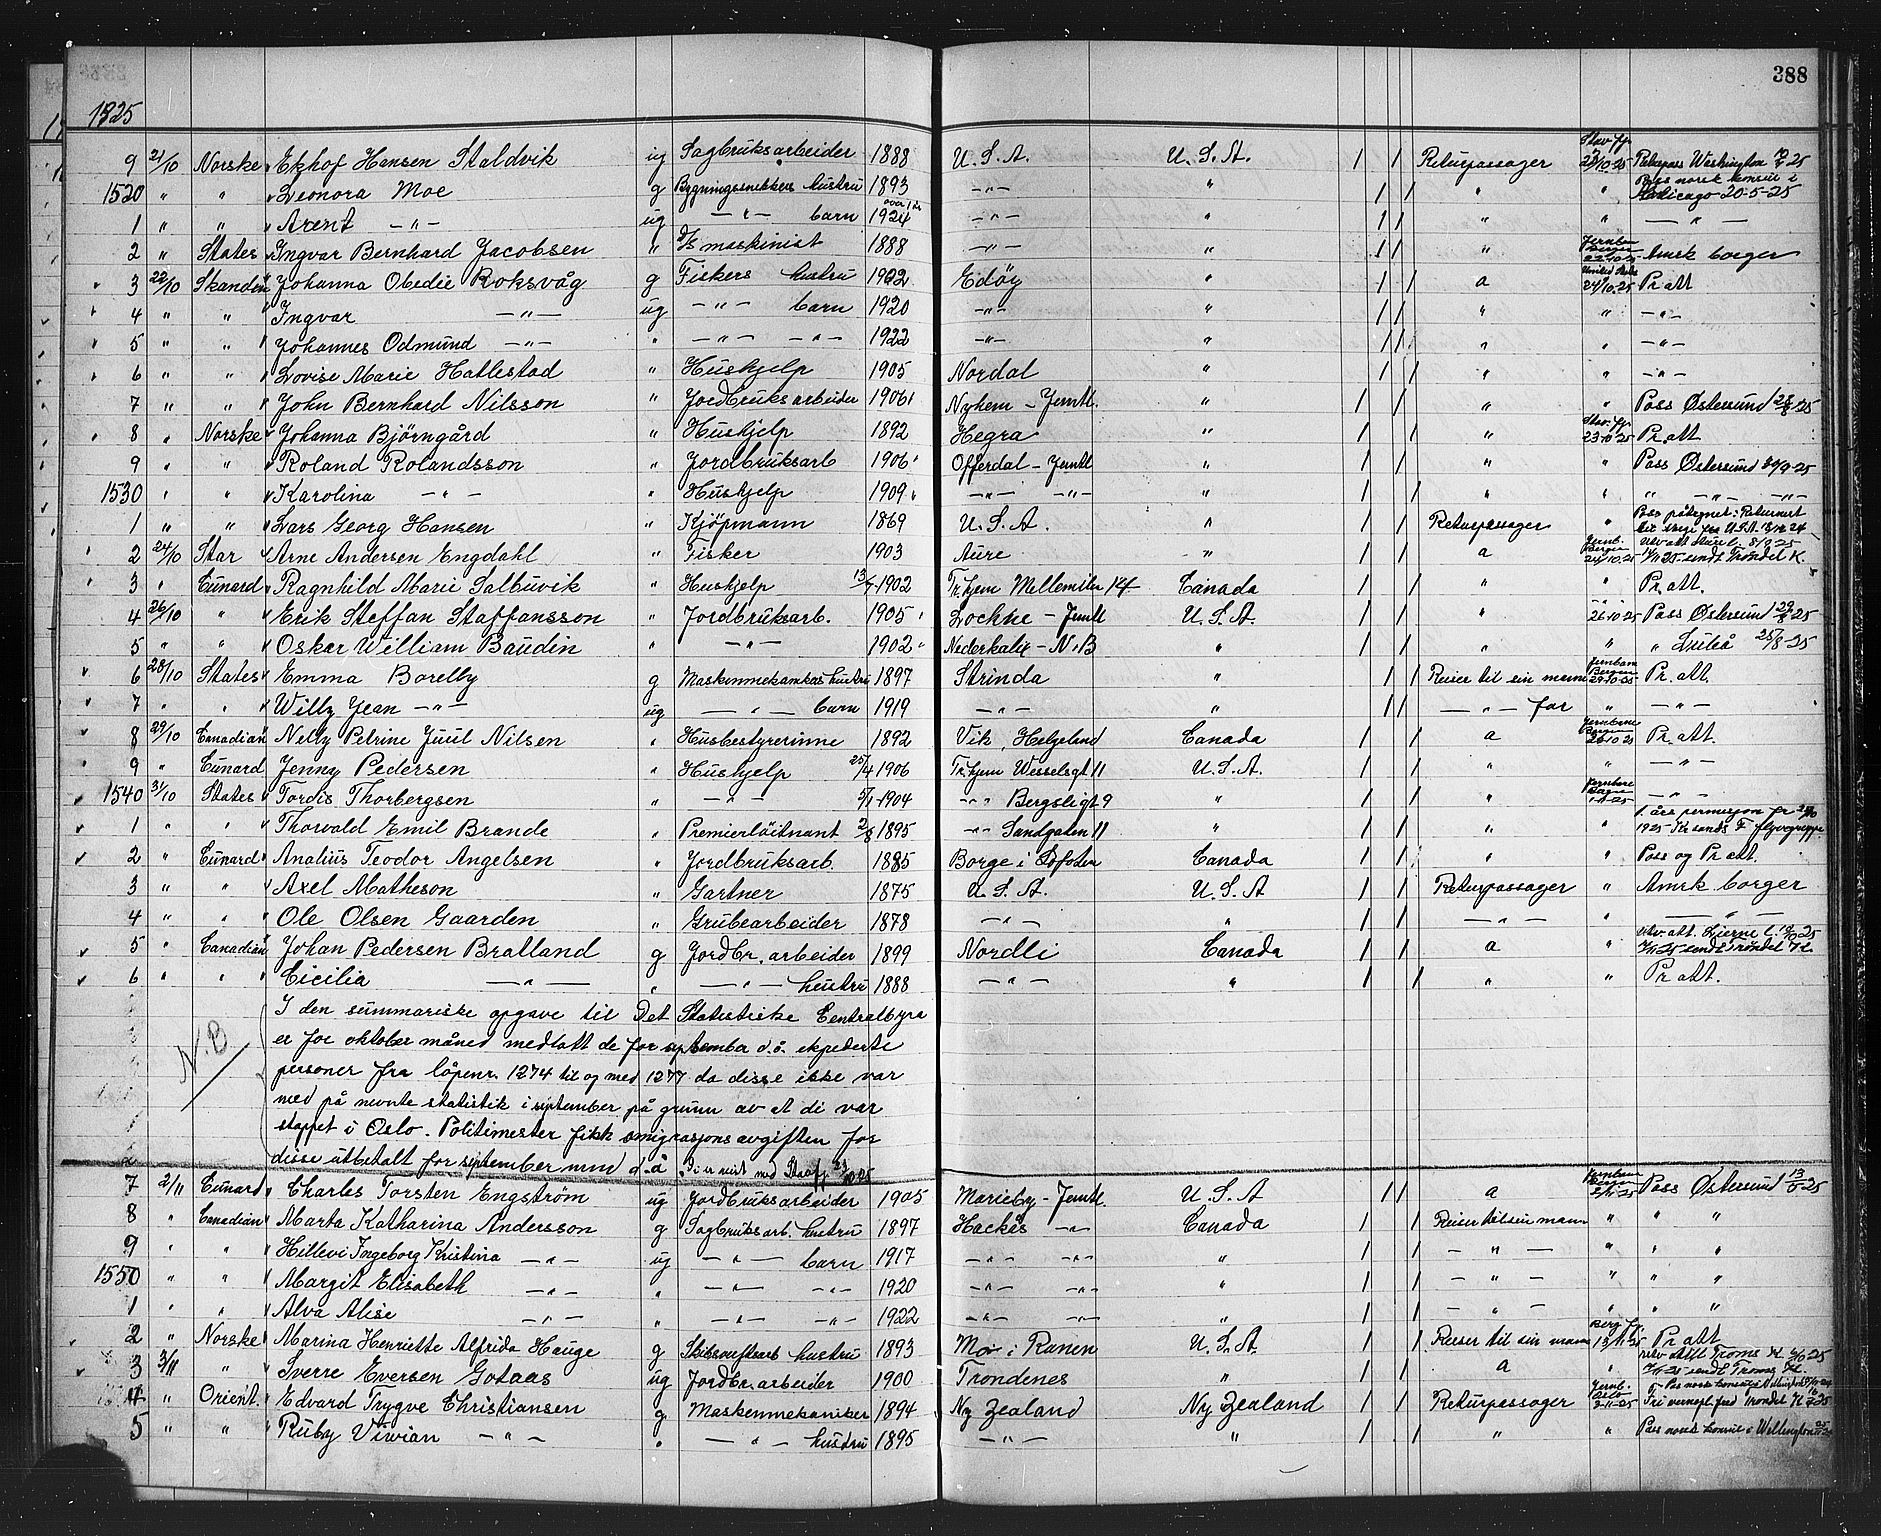 388
1925
9 21/10 Norske Ekhof Hansen Staldvik ug Sagbruksarbeider 1888 U.S.A. U.S.A. / / Returpassager 23/10-25 Returpass Washington 25
1520 " " Leonora Moe g Bygningssnekkers hustru 1893 -"- " / / " " Pass norsk konsul i Chicago 20-5-25
1 " " Arent -"- ug -"- barn over 1 år 1924 -"- " / / " " -"-
2 " States Ingvar Bernhard Jacobsen " D/s maskinist 1888 -"- / / " Jernban Bergen 22-10-25 Amrk borger
3 22/10 Skanden Johanna Obedie Roksvåg g Fiskers hustru 1902 Edöy " / / a United States 24/10-25 Pr. att
4 " " Ingvar -"- ug -"- barn 1920 -"- " / / " " -"-
5 " " Johannes Odmund -"- " -"- -"- 1922 -"- / / " " -"-
6 " " Lovise Marie Hatlestad " Hushjelp 1905 Nordal " / / " " -"-
7 " " John Bernhard Nilsson " Jordbruksarbeider 1906 Nyhem - Jemtl. " / / " Pass Østersund 28/8-25
8 " Norske Johanna Björngård " Hushjelp 1892 Hegra " / / " Stav. fj. 23-10-25 Pr. att
9 " " Roland Rolandsson " Jordbruksarb 1906 Offerdal - Jemtl " / / " " Pass Østersund 30/9-25
1530 " " Karolina -"- " Hushjelp 1909 -"- -"- " / / " " " -"- -"-
1 " " Lars Georg Hansen " Kjöpmann 1869 U.S.A. " / / Returpassager " Pass påtegnet: Returnert
2 24/10 Star Arne Andersen Engdahl " Fisker 1903 Aure " / / a Jernb. Bergen 24/10-25 14/11 25 sendt Trondel K.
3 " Cunard Ragnhild Marie Salbuvik " Hushjelp 13/7-1902 Tr.hjem Mellemila 14 Canada / / " " Pr. att.
4 26/10 " Erik Steffan Staffansson " Jordbruksarb. 1905 Lockne - Jemtl U.S.A. / / " 26-10-25 Pass Østersund 29/8-25
5 " " Oskar William Baudin " -"- 1902 Nederkalix - N.B " / / " " " Luleå 25/8-25
6 28/10 States Emma Borelby g Maskinmekanikers hustru 1897 Strinda " / / Reiser til sin mann Jernbane Bergen 29-10-25 Pr. att.
7 " " Willy Jean -"- ug -"- barn 1919 -"- " / / -"- far " -"-
8 29/10 Canadian Nelly Petrine Juul Nilsen " Husbestyrerinne 1892 Vik, Helgeland Canada / / a Jernbane Bergen Pr. att.
9 " Cunard Jenny Pedersen " Hushjelp 25/4 1906 Tr.hjem Wesselsgt 11 U.S.A. / / " " -"-
1540 31/10 States Tordis Thorbergsen " -"- 5/1-1904 -"- Bergsligt 9 " / / " Jernbane 1-11-25 -"-
1 " " Thorvald Emil Brande " Premierlöitnant 2/8 1895 -"- Sandgaten 11 " / / " " 1. års permisjon fr 1925 - Kr.sands F. flyvegruppe
2 " Cunard Analius Teodor Angelsen " Jordbruksarb. 1885 Borge i Lofoten Canada / / " " Pass og Pr. att.
3 " " Axel Matheson " Gartner 1875 U.S.A. U.S.A / / Returpassager " Amrk borger
4 " " Ole Olsen Gaarden " Grubearbeider 1878 -"- " / / -"- " -"-
5 " Canadian Johan Pedersen Bratland g Jordbr. arbeider 1899 Nordli Canada / / a " utv. att. Lierne l. 25 7/11 25 sendt Tröndel K.
6 " " Cicilia -"- " -"- hustru 1888 -"- " / / " " Pr. att.
N.B
I den summariske opgave til Det Statistiske Centralbyrå
er for oktober måned medtatt de for september d.å. ekspederte
personer fra löpenr. 1274 til og med 1277 da disse ikke var
med på nevnte statistik i september på grunn av at di var
stoppet i Oslo. Politimester fikk emigrasjonsavgiften for
disse utbetalt for september mnd d.å.
7 2/11 Cunard Charles Torsten Engström ug Jordbruksarbeider 1905 Marieby - Jemtl. U.S.A / / a Jernbane Bergen 2/11-25 Pass Østersund 25
8 " Canadian Marta Katharina Andersson g Sagbruksarb. hustru 1897 Hackås -"- Canada / / Reiser til sin mann " " "
9 " " Hillevi Ingeborg Kristina -"- ug -"- barn 1917 -"- -"- " / / -"- " " "
1550 " " Margit Elisabeth -"- -"- -"- 1920 -"- -"- " / / -"- " " "
1 " " Alva Alise -"- " -"- -"- 1922 -"- -"- " / / -"- " "
2 " Norske Marina Henriette Alfrida Hauge g hustru 1893 Mo i Ranen U.S.A / / Reiser til sin mann Berg. fj. 13/11-25 Pr. att
3 3/11 " Sverre Eversen Gotaas ug Jordbr. arbeider 1900 Trondenes " / / a " 7/11-25 sendt Troms K.
4 " Orient. Edvard Trygve Christiansen g Maskinmekaniker 1894 Ny Zealand Ny Zealand / / Returpassager Jernb. Oslo 3-11-25
5 " " Ruby Vivian -"- " -"- hustru 1895 -"- " / / " " Pass norsk konsul i Wellington